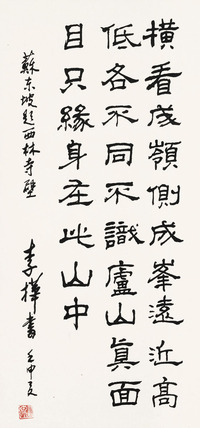 橫看成嶺側成峯遠近高
低各不同不識廬山真面
目只緣身在此山中
蘇東坡題西林寺壁
李樺書 壬申夏